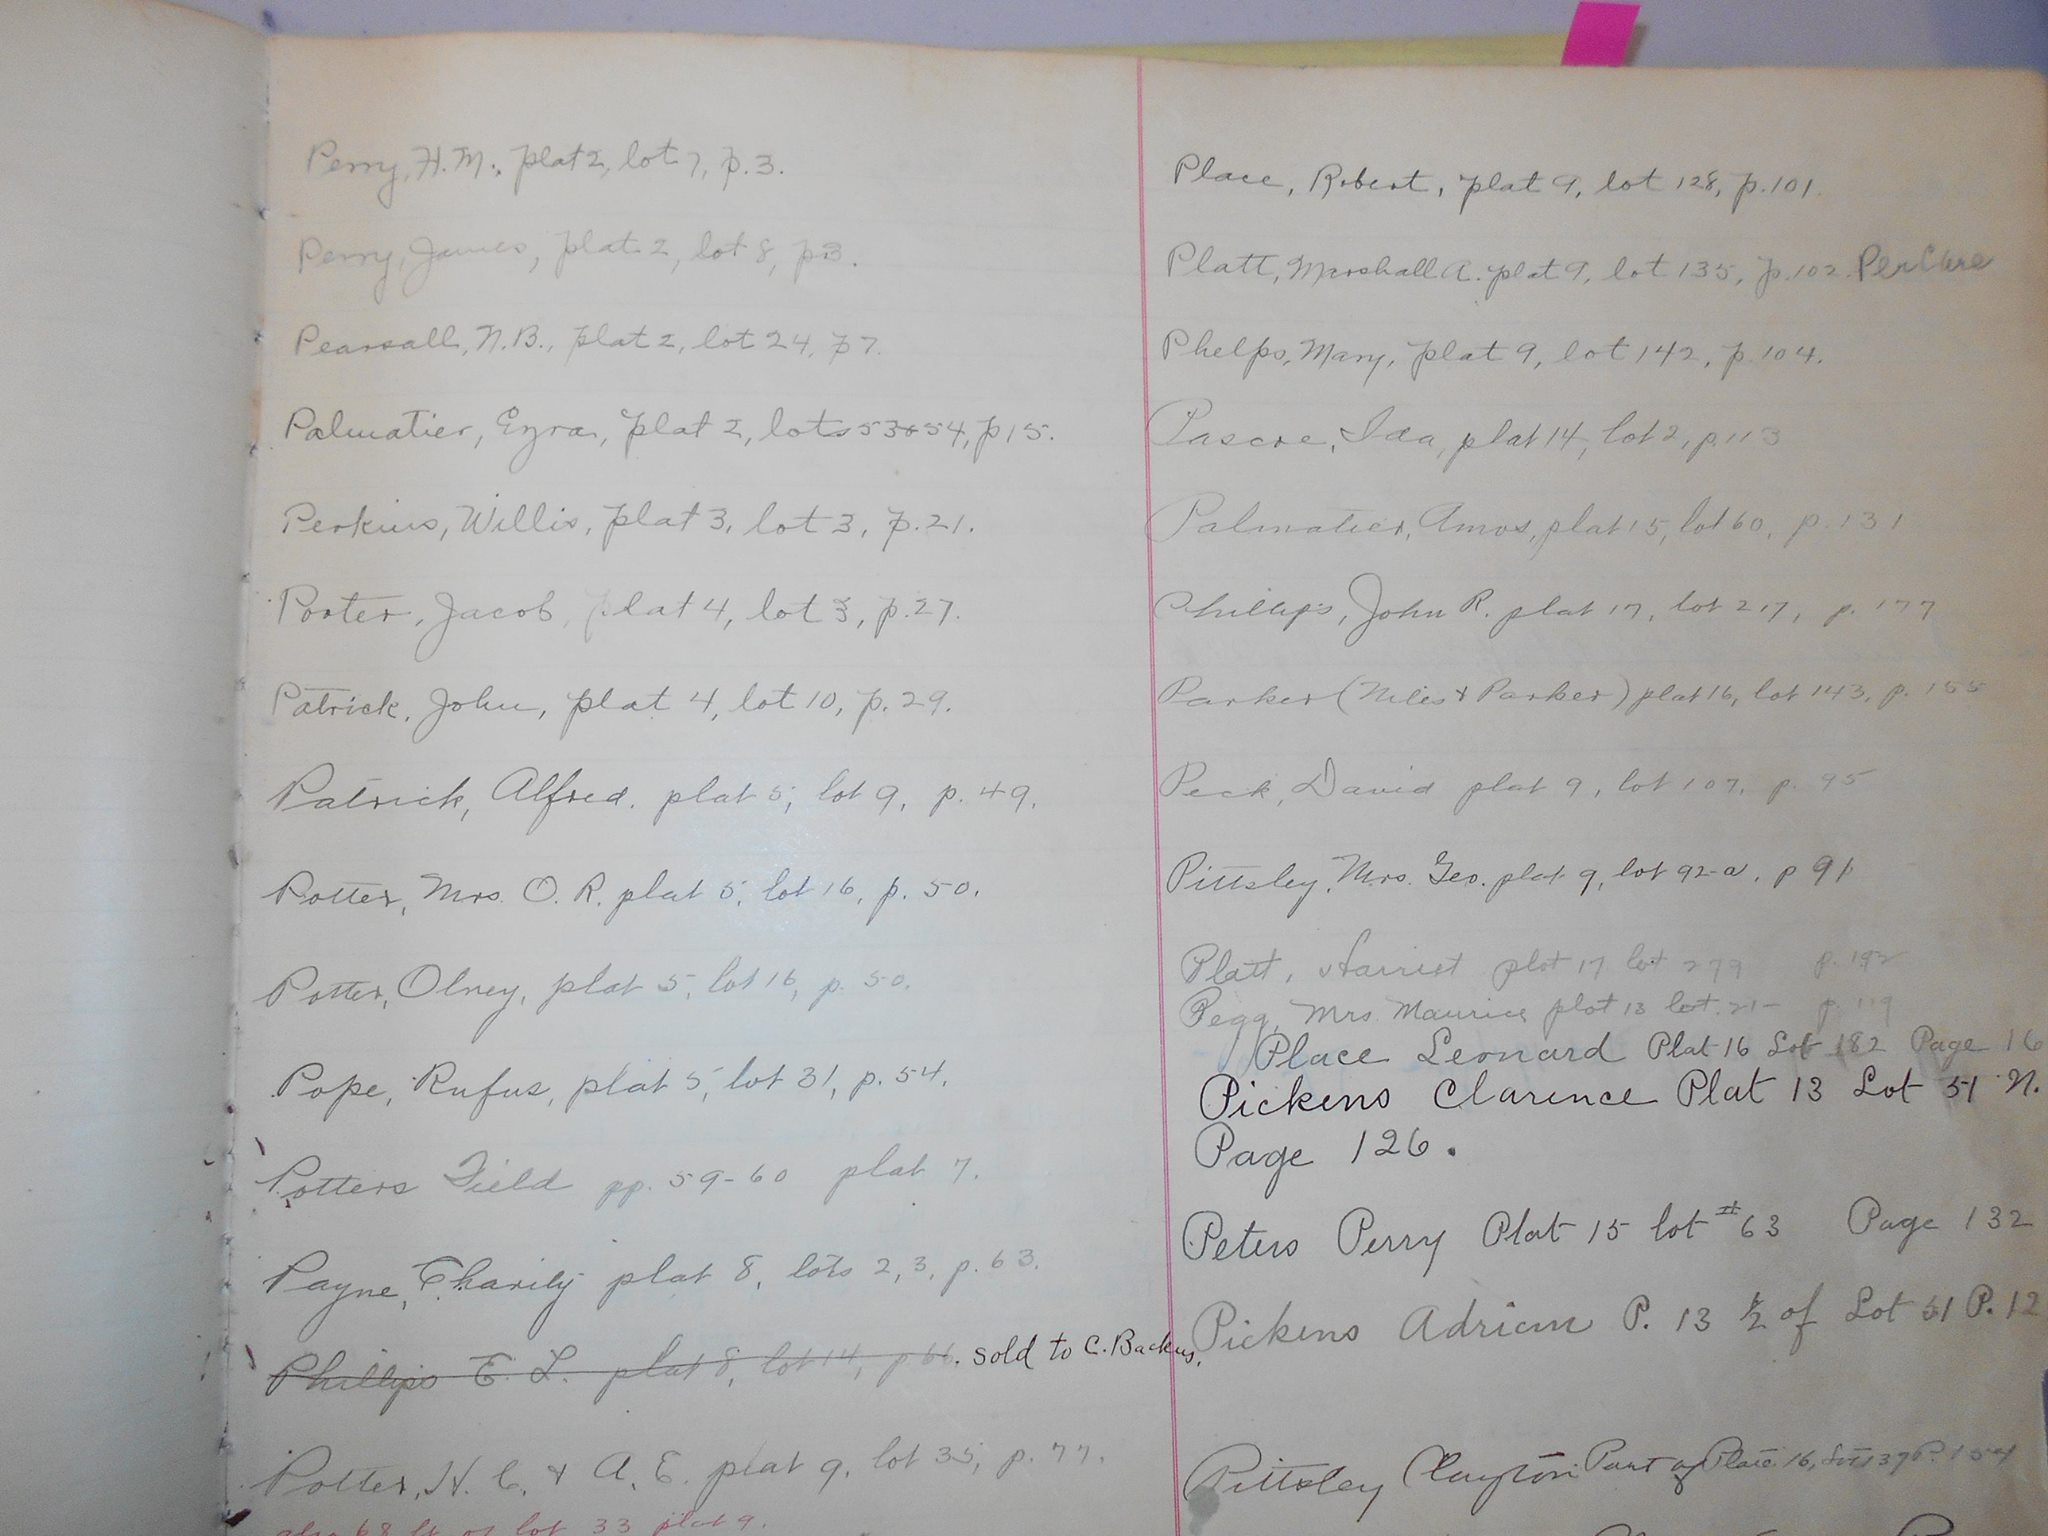 Perry, H. M., plat 2, lot 7, p. 3.
Perry, James, plat 2, lot 8, p 3.
Pearsall, N. B., plat 2, lot 24, p 7.
Palmatier, Ezra, plat 2, lots 53 & 54, p 15.
Perkins, Willis, plat 3, lot 3, p. 21.
Porter, Jacob, plat 4, lot 3, p. 27.
Patrick, John, plat 4, lot 10, p. 29.
Patrick, Alfred. plat 5, lot 9, p. 49.
Potter, Mrs. O. R. plat 5, lot 16, p. 50.
Potter, Olney, plat 5, lot 16, p. 50.
Pope, Rufus, plat 5, lot 31, p. 54.
Potters Field pp. 59-60 plat 7.
Payne, Charity plat 8, lots 2, 3, p. 63.
Phillips E. L. plat 8, lot 14, p. 66. sold to C. Backus,
Potter, H. C. & A. E. plat 9, lot 35, p. 77.
also 68 ft of lot 33 plat 9.
Place, Robert, plat 9, lot 128, p. 101.
Platt, Marshall A. plat 9, lot 135, p. 102 Per Care
Phelps, Mary, plat 9, lot 142, p. 104.
Pascoe, Ida, plat 14, lot 2, p. 113
Palmatier, Amos, plat 15, lot 60, p. 131
Phillips, John R. plat 17, lot 217, p. 177
Parker (Niles & Parker) plat 16, lot 143, p. 155
Peck, David plat 9, lot 107, p. 95
Pittsley, Mrs. Geo. plat 9, lot 92-a, p 91
Platt, Harriet plot 17 lot 279 p. 192
Pegg, Mrs Maurice plot 13 lot 21- p. 119
Place Leonard Plat 16 Lot 182 Page 16
Pickens Clarence Plat 13 Lot 51 N.
Page 126.
Peters Perry Plat 15 lot # 63 Page 132
Pickens Adrian P. 13 ½ of Lot 51 P. 12
Pittsley Clayton Part of Plat 16, Lot 137 P. 154